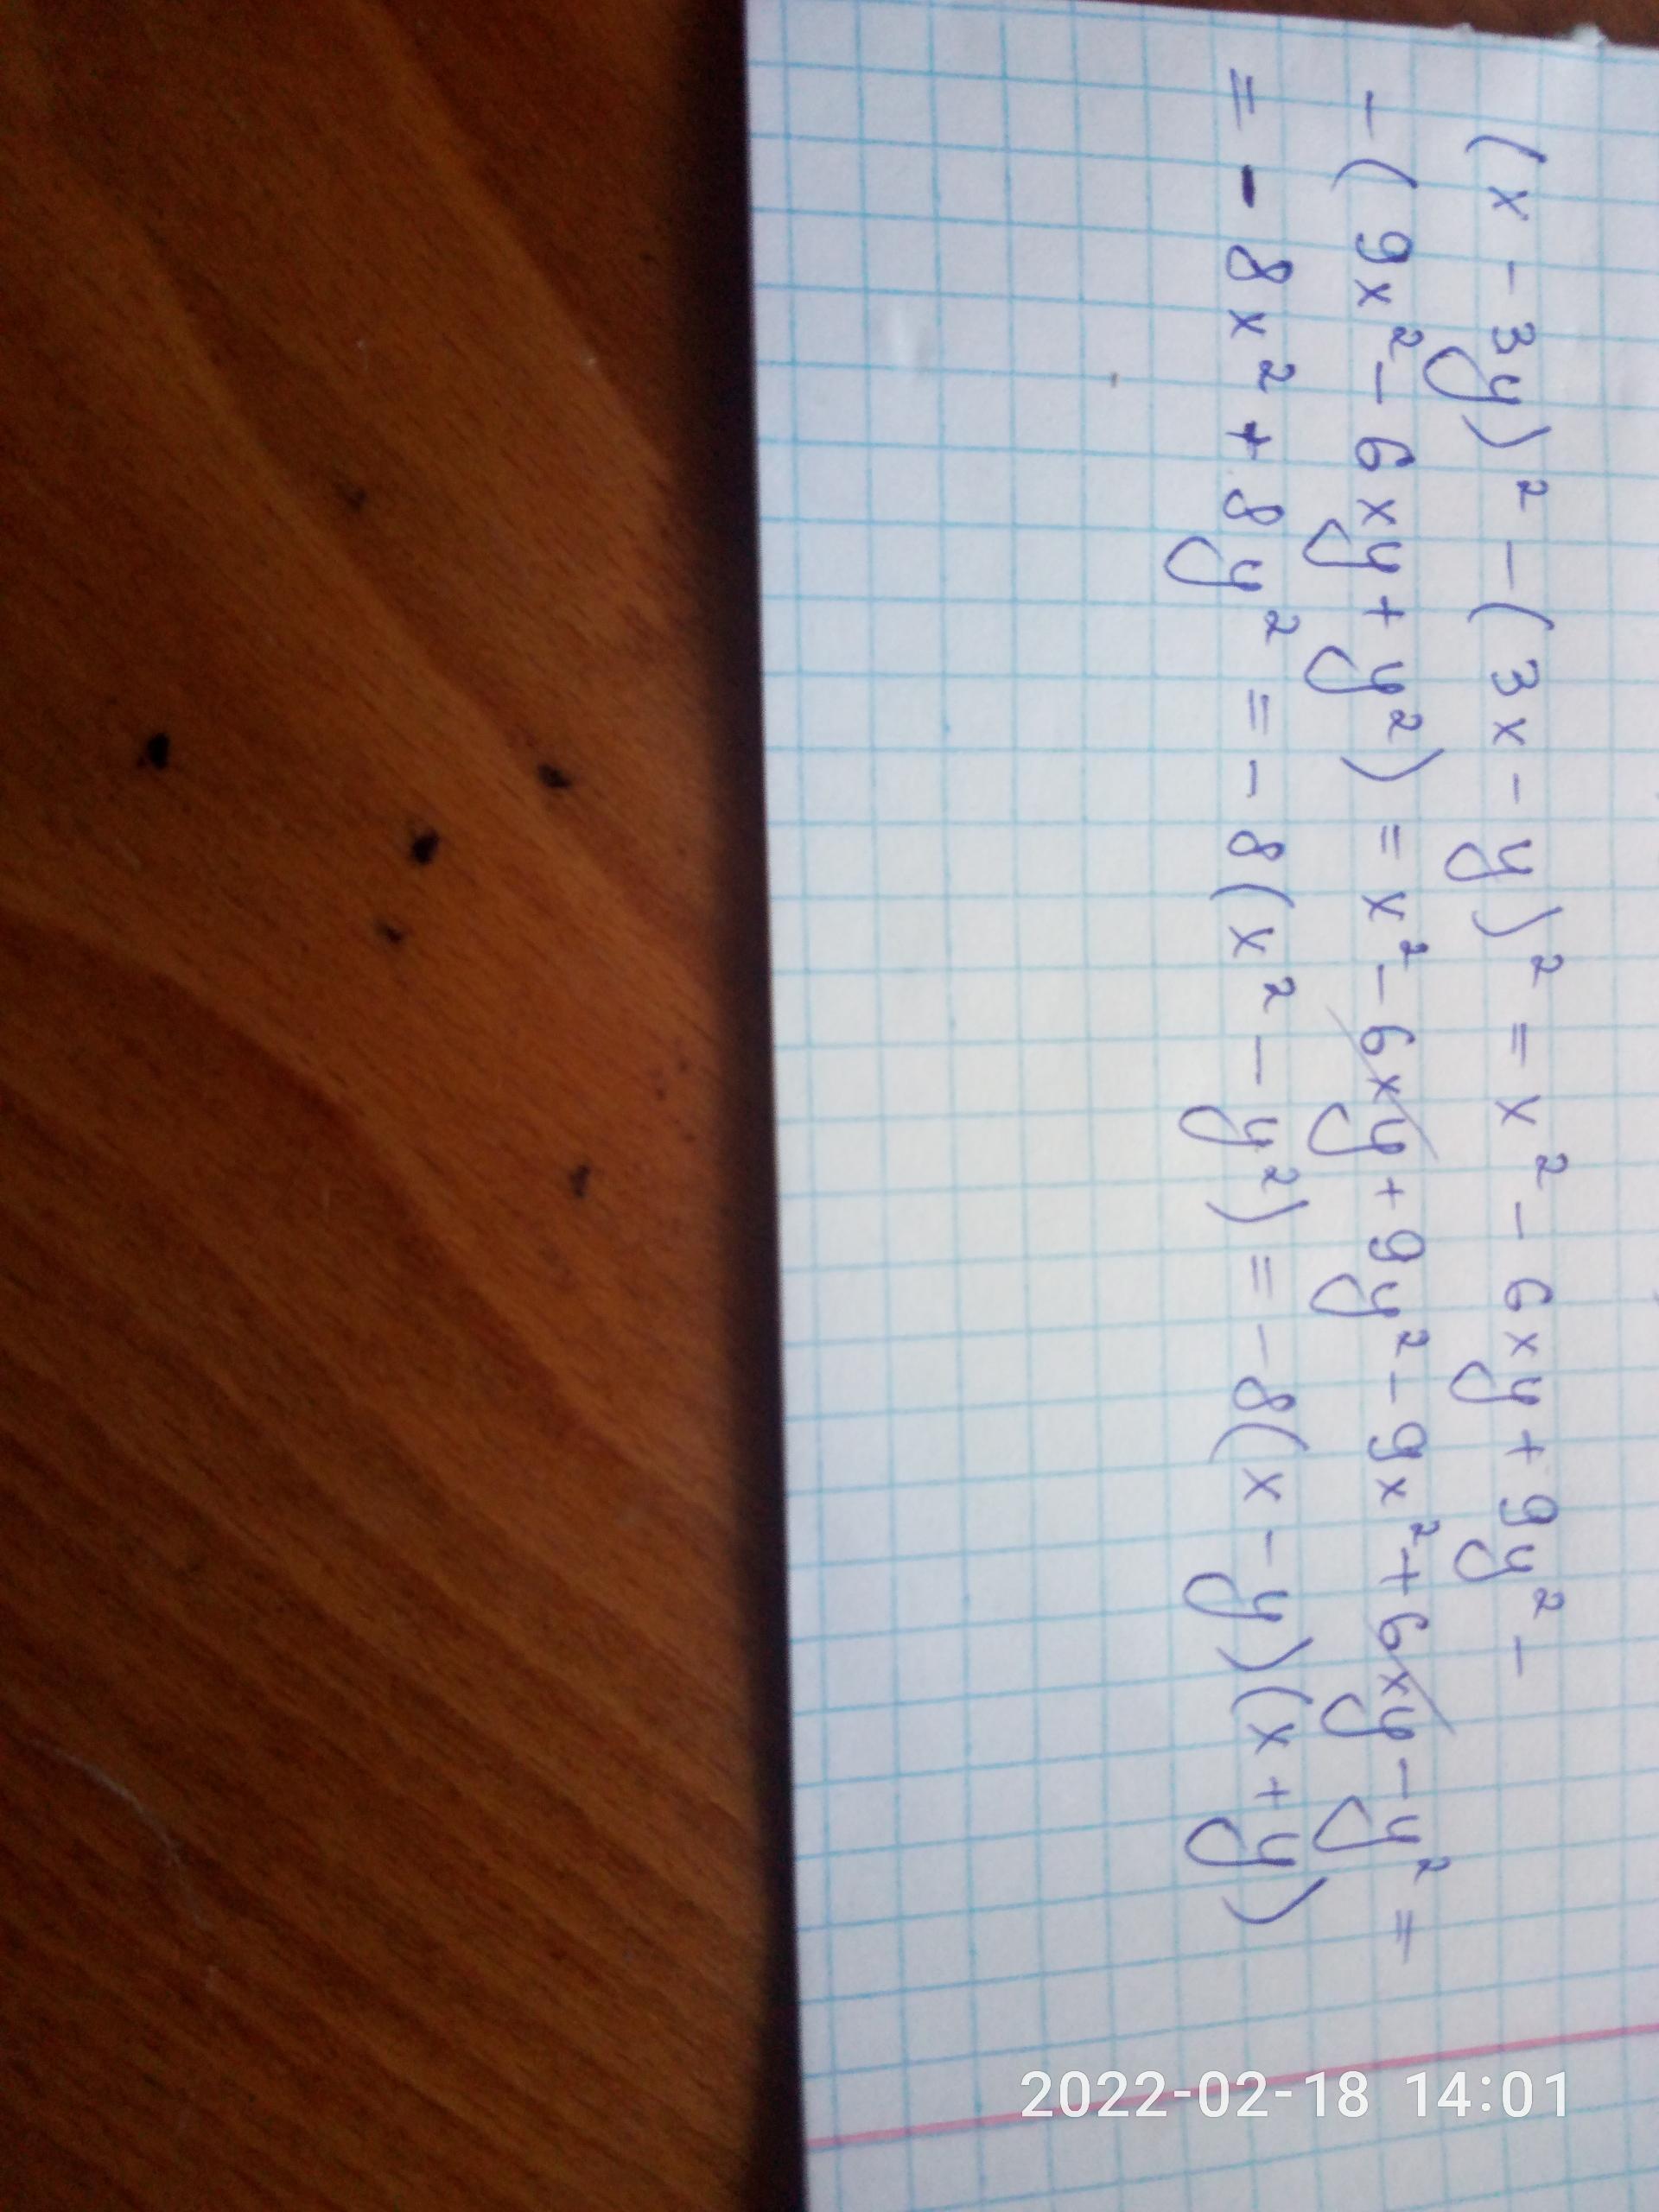 (x - 3y)² - (3x - y)² = x² - 6xy + 9y² -
- (9x² - 6xy + y²) = x² - 6xy + 9y² - 9x² + 6xy - y² =
= - 8x² + 8y² = - 8(x² - y²) = - 8(x - y)(x + y)
2022-02-18 14:01